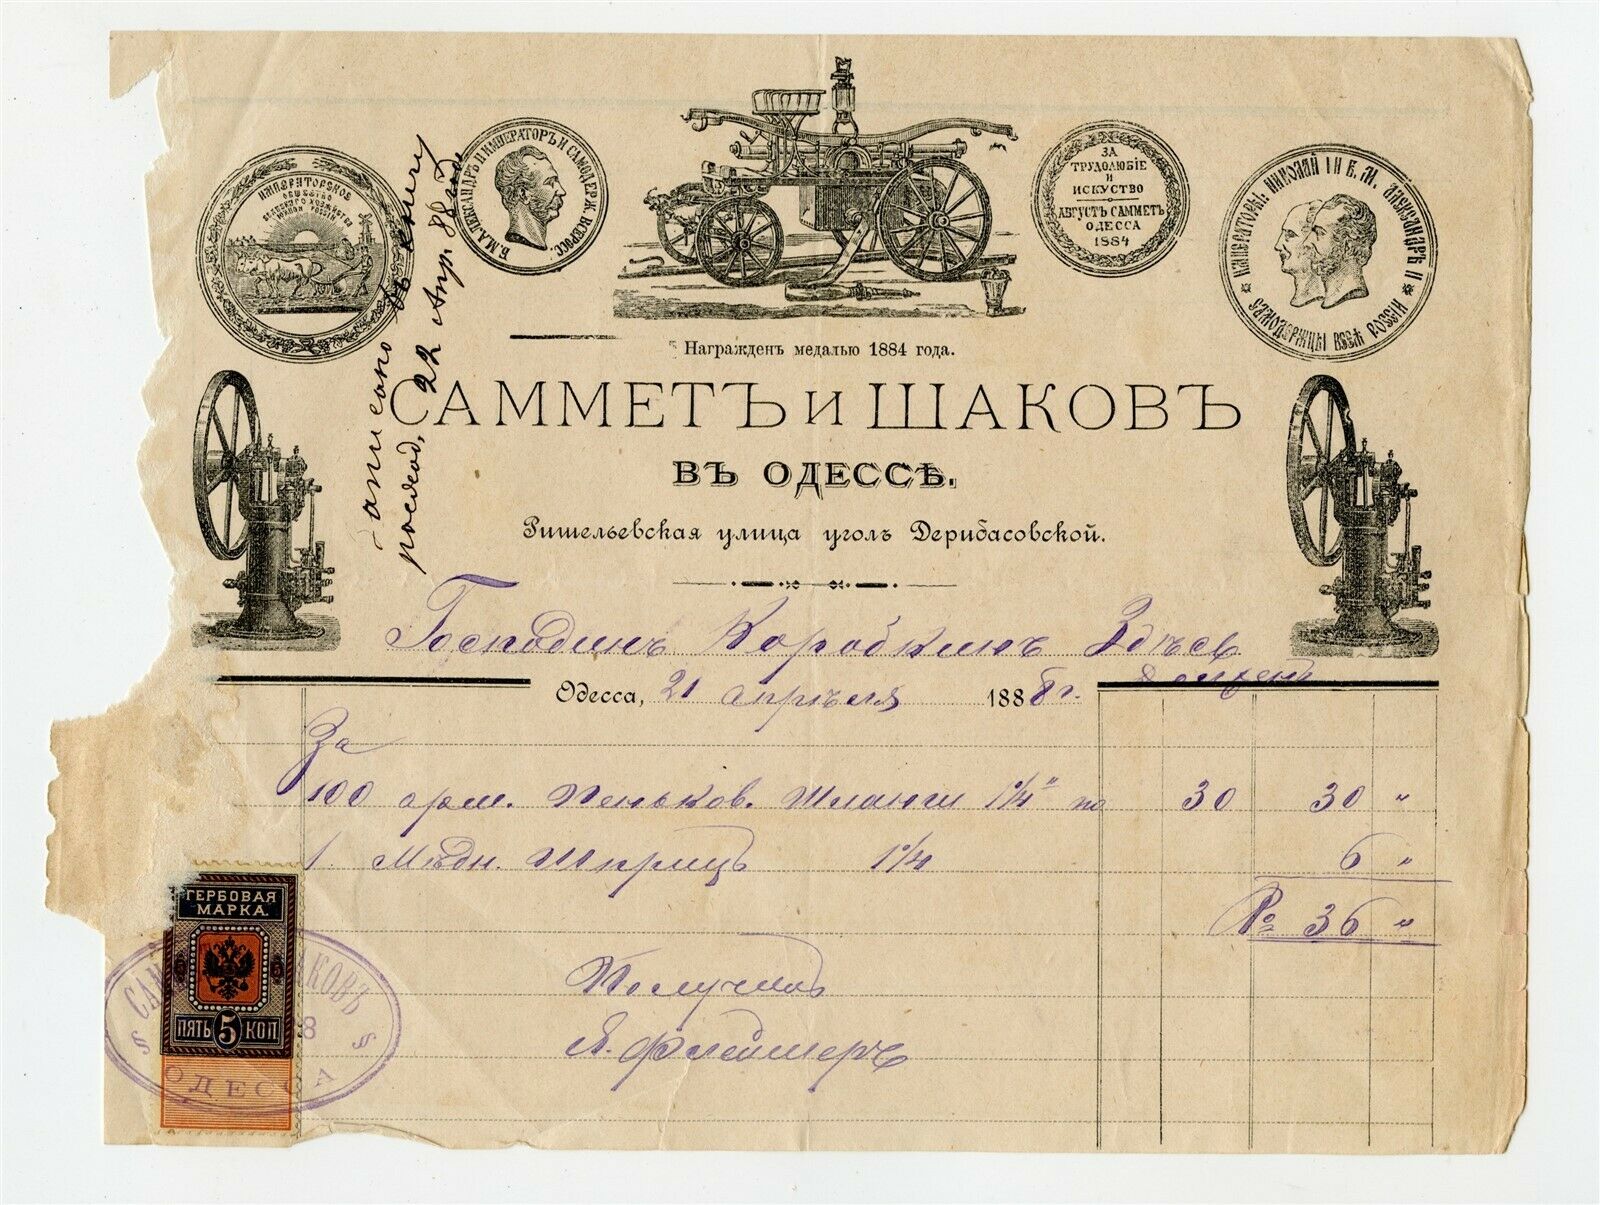 ИМПЕРАТОРСКОЕ
ОБЩЕСТВО
СЕЛЬСКАГО ХОЗЯЙСТВА
ЮЖНОЙ РОССІИ
Б.М.АЛЕКСАНДРЪ II ИМПЕРАТОРЪ И САМОДЕРЖ. ВСЕРОСС.
ЗА
ТРУДОЛЮБІЕ
И
ИСКУСТВО
АВГУСТЪ САММЕТЪ
ОДЕССА
1884
ИМПЕРАТОРЫ НИКОЛАЙ I И Б. М. АЛЕКСАНДРЪ II
САМОДЕРЖЦЫ ВСЕЯ РОССІИ
записано въ книгу
расход, 22 Апр. 88 года
Награжденъ медалью 1884 года.
САММЕТЪ И ШАКОВЪ
ВЪ ОДЕССѢ.
Ришельевская улица уголъ Дерибасовской.
Господинъ Коробкинъ Здѣсь
Одесса, 21 апрѣля 1888 г.
За
100 арш. Пеньков. Шланги 1¼" по 30 30 "
1. Мѣдн. Шприцъ 1¼ 6 "
Ро 36 "
Получилъ
А. Флейшеръ
ГЕРБОВАЯ
МАРКА.
5 5
ПЯТЬ 5 КОП
САМ ШАКОВЪ
8
ОДЕССА